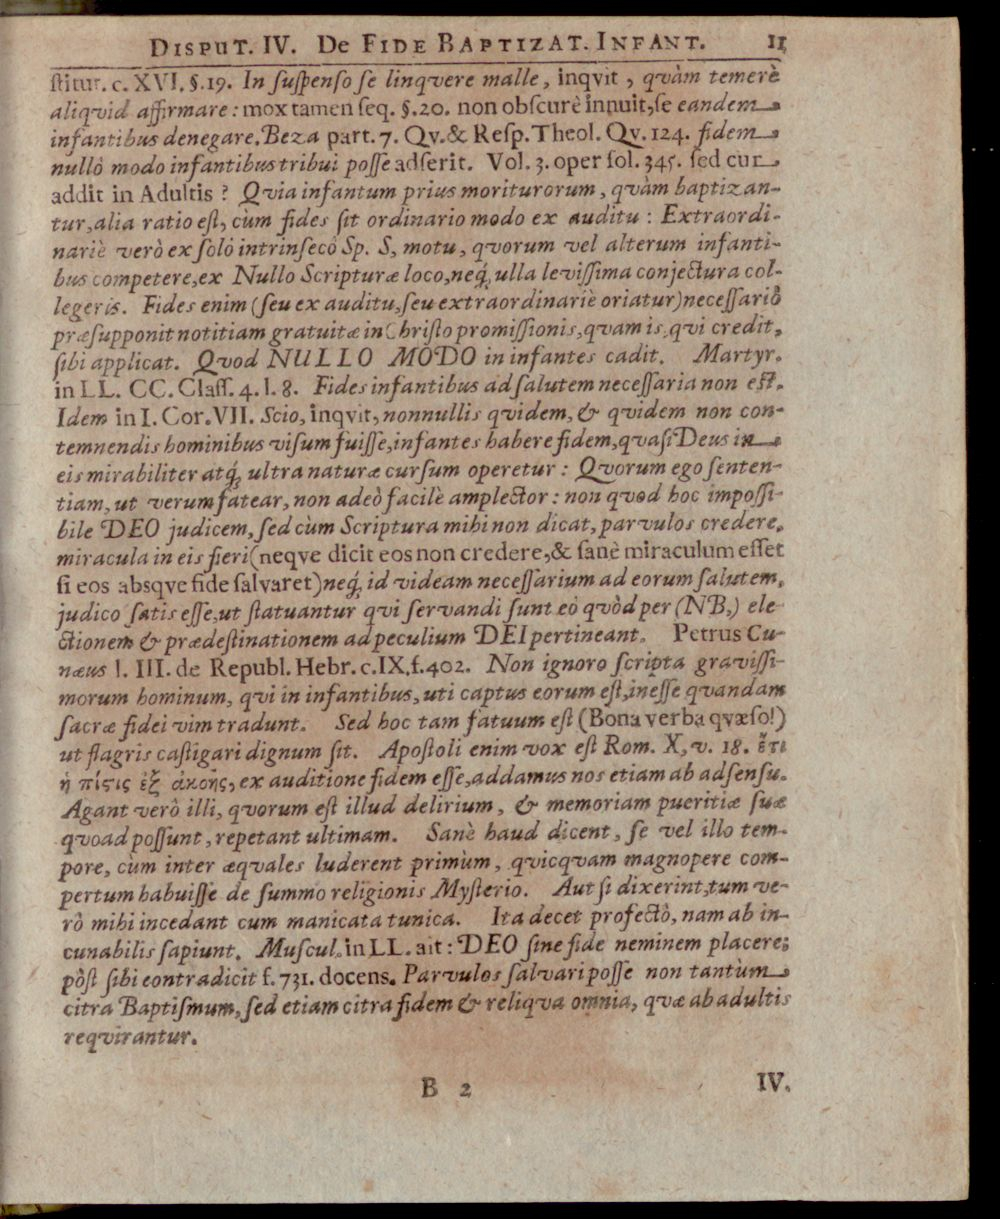 DISPUT. IV. DE FIDE BAPTIZAT. INFANT. 11
ſtitut. c. XVI. §.19. In ſuſpenſo ſe linqvere malle, inqvit, qvàm temerè
aliqvid affirmare: mox tamen ſeq. §.20. non obſcurè innuit, ſe eandem
infantibus denegare. Beza part. 7. Qv. & Reſp. Theol. Qv. 124. fidem
nullô modo infantibus tribui poſſe adſerit. Vol. 3. oper fol. 345. ſed cur
addit in Adultis? Qvia infantum prius moriturorum, qvàm baptizan-
tur, alia ratio eſt, cùm fides ſit ordinario modo ex auditu: Extraordi-
nariè verò ex ſolô intrinſecô Sp. S, motu, qvorum vel alterum infanti-
bus competere, ex Nullo Scripturæ loco, neq́; ulla leviſſima conjectura col-
legeris. Fides enim (ſeu ex auditu, ſeu extraordinariè oriatur) neceſſariò
præsupponit notitiam gratuitæ in Chriſto promiſſionis, qvam is, qvi credit,
ſibi applicat. Qvod NULLO MODO in infantes cadit. Martyr.
in LL. CC. Claſſ. 4. l. 8. Fides infantibus ad ſalutem neceſſaria non eſt.
Idem in I. Cor. VII. Scio, inqvit, nonnullis qvidem, & qvidem non con-
temnendis hominibus viſum fuiſſe, infantes habere fidem, qvaſi Deus in
eis mirabiliter atq́; ultra naturæ curſum operetur: Qvorum ego ſenten-
tiam, ut verum fatear, non adeò facilè amplector: non qvod hoc impoſſi-
bile DEO judicem, ſed cùm Scriptura mihi non dicat, parvulos credere,
miracula in eis fieri (neqve dicit eos non credere, & ſanè miraculum eſſet
ſi eos absqve fide ſalvaret) neq́; id videam neceſſarium ad eorum ſalutem,
judico ſatis eſſe, ut ſtatuantur qvi ſervandi ſunt eò qvòd per (NB,) ele-
ctionem & prædeſtinationem ad peculium DEI pertineant. Petrus Cu-
næus l. III. de Republ. Hebr. c.IX, f.402. Non ignoro ſcripta graviſſi-
morum hominum, qvi in infantibus, uti captus eorum eſt, ineſſe qvandam
ſacræ fidei vim tradunt. Sed hoc tam fatuum eſt (Bona verba qvæſo!)
ut flagris caſtigari dignum ſit. Apoſtoli enim vox eſt Rom. X, v. 18. ἔτι
ἡ πίϛις ἐξ ἀκοῆς, ex auditione fidem eſſe, addamus nos etiam ab adſenſu.
Agant verò illi, qvorum eſt illud delirium, & memoriam pueritiæ ſuæ
qvoad poſſunt, repetant ultimam. Sanè haud dicent, ſe vel illo tem-
pore, cùm inter æqvales luderent primùm, qvicqvam magnopere com-
pertum habuiſſe de ſummo religionis Myſterio. Aut ſi dixerint, tum ve-
rò mihi incedant cum manicata tunica. Ita decet profectò, nam ab in-
cunabilis ſapiunt. Muſcul. in LL. ait: DEO ſine fide neminem placere;
pòſt ſibi contradicit f. 731. docens. Parvulos ſalvari poſſe non tantùm
citra Baptiſmum, ſed etiam citra fidem & reliqva omnia, qvæ ab adultis
reqvirantur.
B 2 IV.